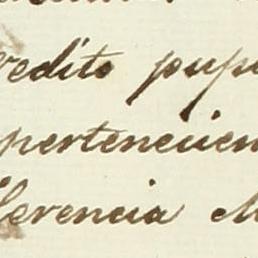 redito pup
pertenecien
Herencia M